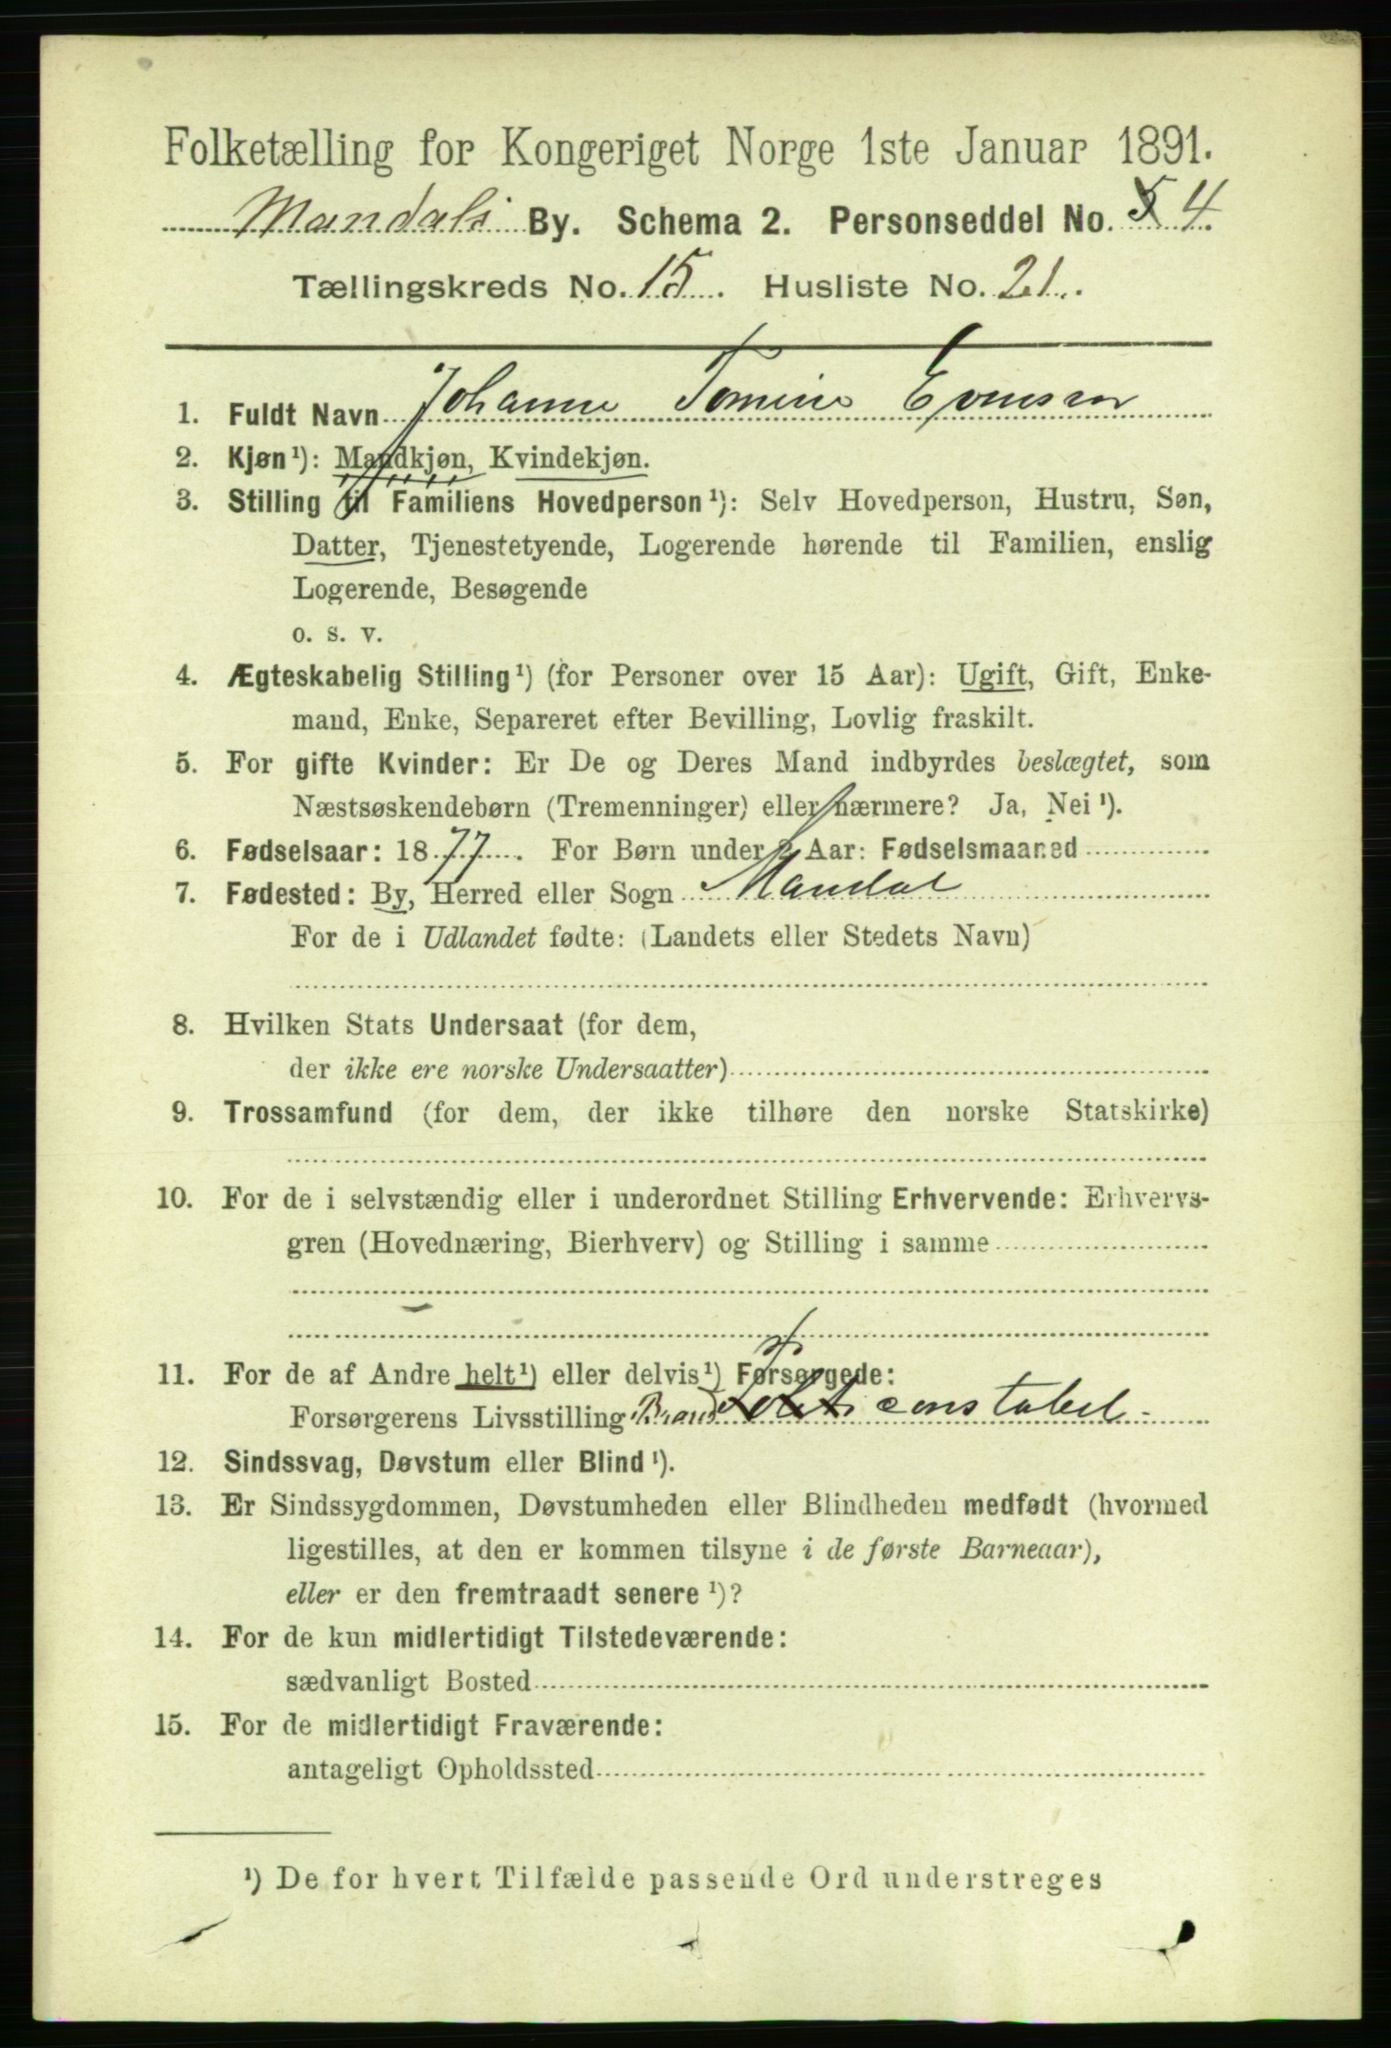 Folketælling for Kongeriget Norge 1ste Januar 1891.
Mandals By. Schema 2. Personseddel No. 5 4.
Tællingskreds No. 15. Husliste No. 21.
1. Fuldt Navn Johanne Tomine Evensen
2. Kjøn¹): Mandkjøn, Kvindekjøn.
3. Stilling til Familiens Hovedperson¹): Selv Hovedperson, Hustru, Søn,
Datter, Tjenestetyende, Logerende hørende til Familien, enslig
Logerende, Besøgende
o. s. v.
4. Ægteskabelig Stilling¹) (for Personer over 15 Aar): Ugift, Gift, Enke-
mand, Enke, Separeret efter Bevilling, Lovlig fraskilt.
5. For gifte Kvinder: Er De og Deres Mand indbyrdes beslægtet, som
Næstsøskendebørn (Tremenninger) eller nærmere? Ja, Nei¹).
6. Fødselsaar: 1877. For Børn under 2 Aar: Fødselsmaaned
7. Fødested: By, Herred eller Sogn Mandal
For de i Udlandet fødte: (Landets eller Stedets Navn)
8. Hvilken Stats Undersaat (for dem,
der ikke ere norske Undersaatter)
9. Trossamfund (for dem, der ikke tilhøre den norske Statskirke)
10. For de i selvstændig eller i underordnet Stilling Erhvervende: Erhvervs-
gren (Hovednæring, Bierhverv) og Stilling i samme
11. For de af Andre helt¹) eller delvis¹) Forsørgede:
Forsørgerens Livsstilling Brand constabel
12. Sindssvag, Døvstum eller Blind¹).
13. Er Sindssygdommen, Døvstumheden eller Blindheden medfødt (hvormed
ligestilles, at den er kommen tilsyne i de første Barneaar),
eller er den fremtraadt senere¹)?
14. For de kun midlertidigt Tilstedeværende:
sædvanligt Bosted
15. For de midlertidigt Fraværende:
antageligt Opholdssted
¹) De for hvert Tilfælde passende Ord understreges